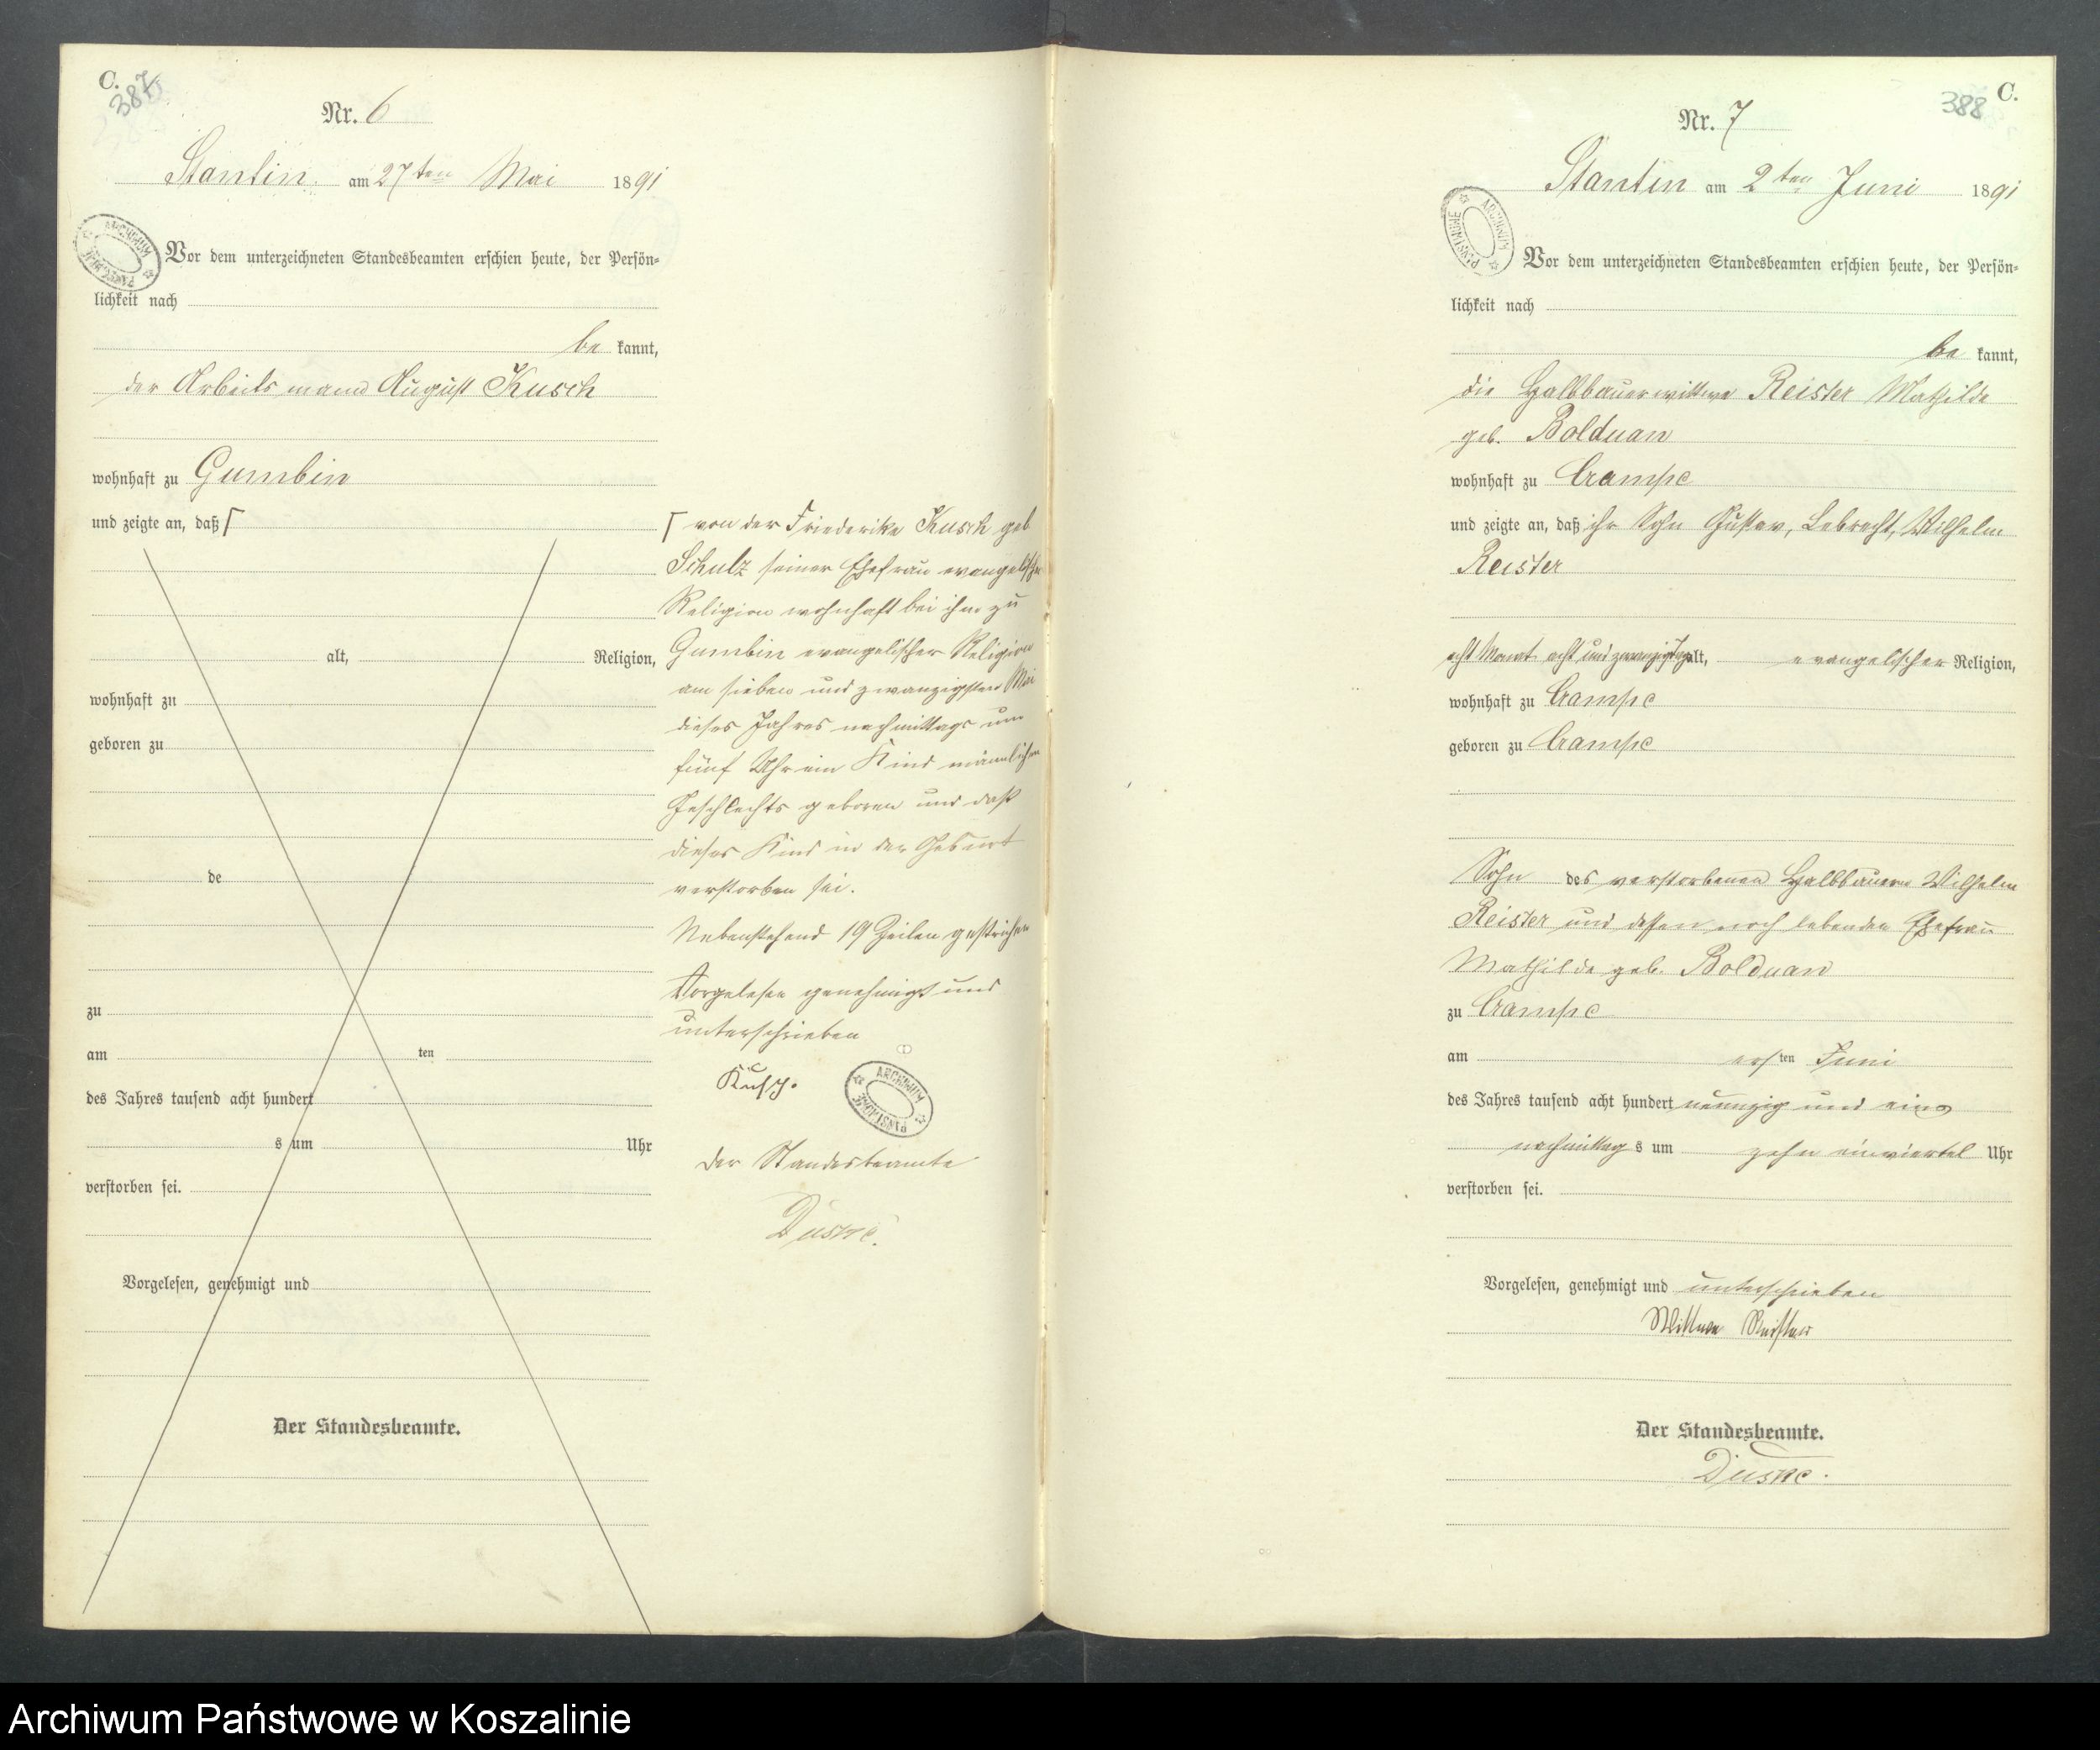 C.
387
Nr. 6
Stantin am 27ten Mai 1891
Vor dem unterzeichneten Standesbeamten erschien heute, der Persön-
lichkeit nach
be kannt,
der Arbeitsmann August Kusch
wohnhaft zu Gumbin
und zeigte an, daß ┌
alt, Religion,
wohnhaft zu
geboren zu
de
zu
am ten
des Jahres tausend acht hundert
s um Uhr
verstorben sei.
Vorgelesen, genehmigt und
Der Standesbeamte.
┌ von der Friederike Kusch geb
Schulz seiner Ehefrau evangelischer
Religion wohnhaft bei ihm zu
Gumbin evangelischer Religion
am sieben und zwanzigsten Mai
dieses Jahres nachmittags um
fünf Uhr ein Kind männlichen
Geschlechts geboren und daß
dieses Kind in der Geburt
verstorben sei.
Nebenstehend 19 Zeilen gestrichen
Vorgelesen genehmigt und
unterschrieben
Kusch.
ARCHIWUM PAŃSTWOWE
der Standesbeamte
388 C.
Nr. 7
Stantin am 2ten Juni 1891
ARCHIWUM PAŃSTWOWE
Vor dem unterzeichneten Standesbeamten erschien heute, der Persön-
lichkeit nach
be kannt,
die Halbbauerwittwe Reister Mathilde
geb. Bolduan
wohnhaft zu Crampe
und zeigte an, daß ihr Sohn Gustav, Lebrecht, Wilhelm
Reister
acht Monat acht und zwanzig Tage alt, evangelischer Religion,
wohnhaft zu Crampe
geboren zu Crampe
Sohn des verstorbenen Halbbauern Wilhelm
Reister und dessen noch lebenden Ehefrau
Mathilde geb. Bolduan
zu Crampe
am ersten Juni
des Jahres tausend acht hundert neunzig und eins
nachmittags um zehn einviertel Uhr
verstorben sei.
Vorgelesen, genehmigt und unterschrieben
Wittwe Reister
Der Standesbeamte.
Archiwum Państwowe w Koszalinie